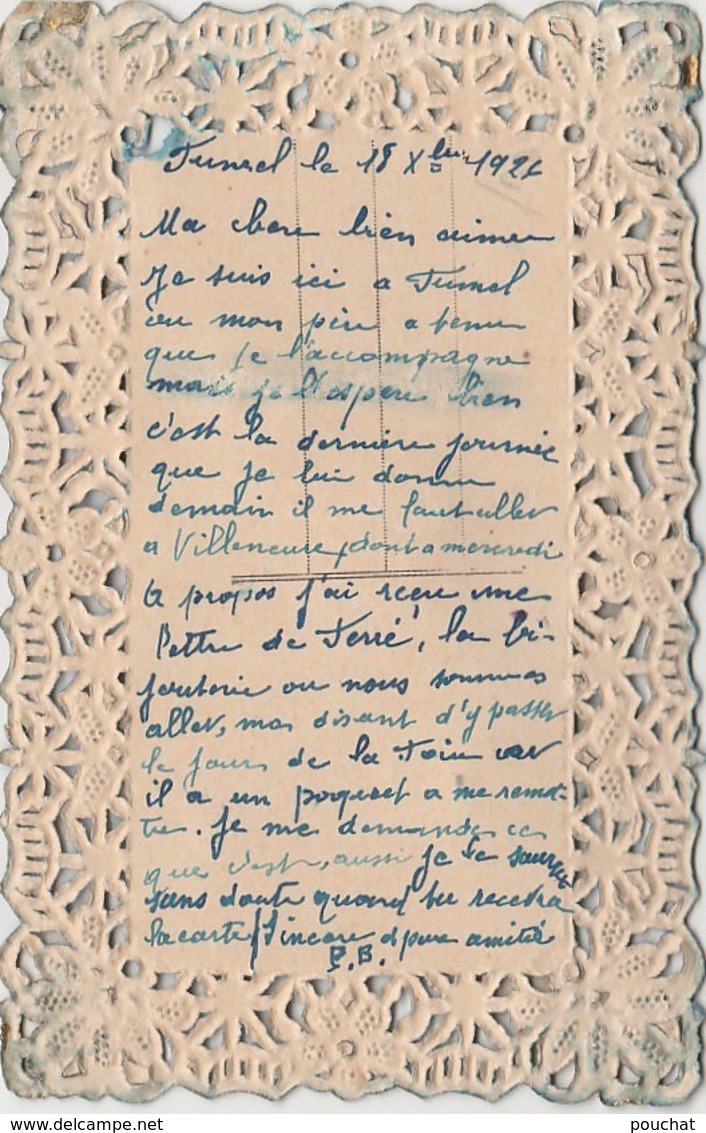 Fumel le 18 Xbre 192
Ma chere bien aimee
Je suis ici a Fumel
ou mon père a tenu
que je l'accompagne
mais je l'espere bien
c'est la derniere journée
que je lui donne
demain il me faut aller
a Villeneuve, dont a mercredi
A propos j'ai reçu une
lettre de Ferrié, la bi-
jouterie ou nous sommes
aller, mas disant d'y passer
le jours de la Foire car
il a un paquet a me remet-
tre. Je me demande ce
que c'est, aussi je le saurai
sans doute quand tu recevra
la carte / Sincere d pure amitié
P.B.
pouchat